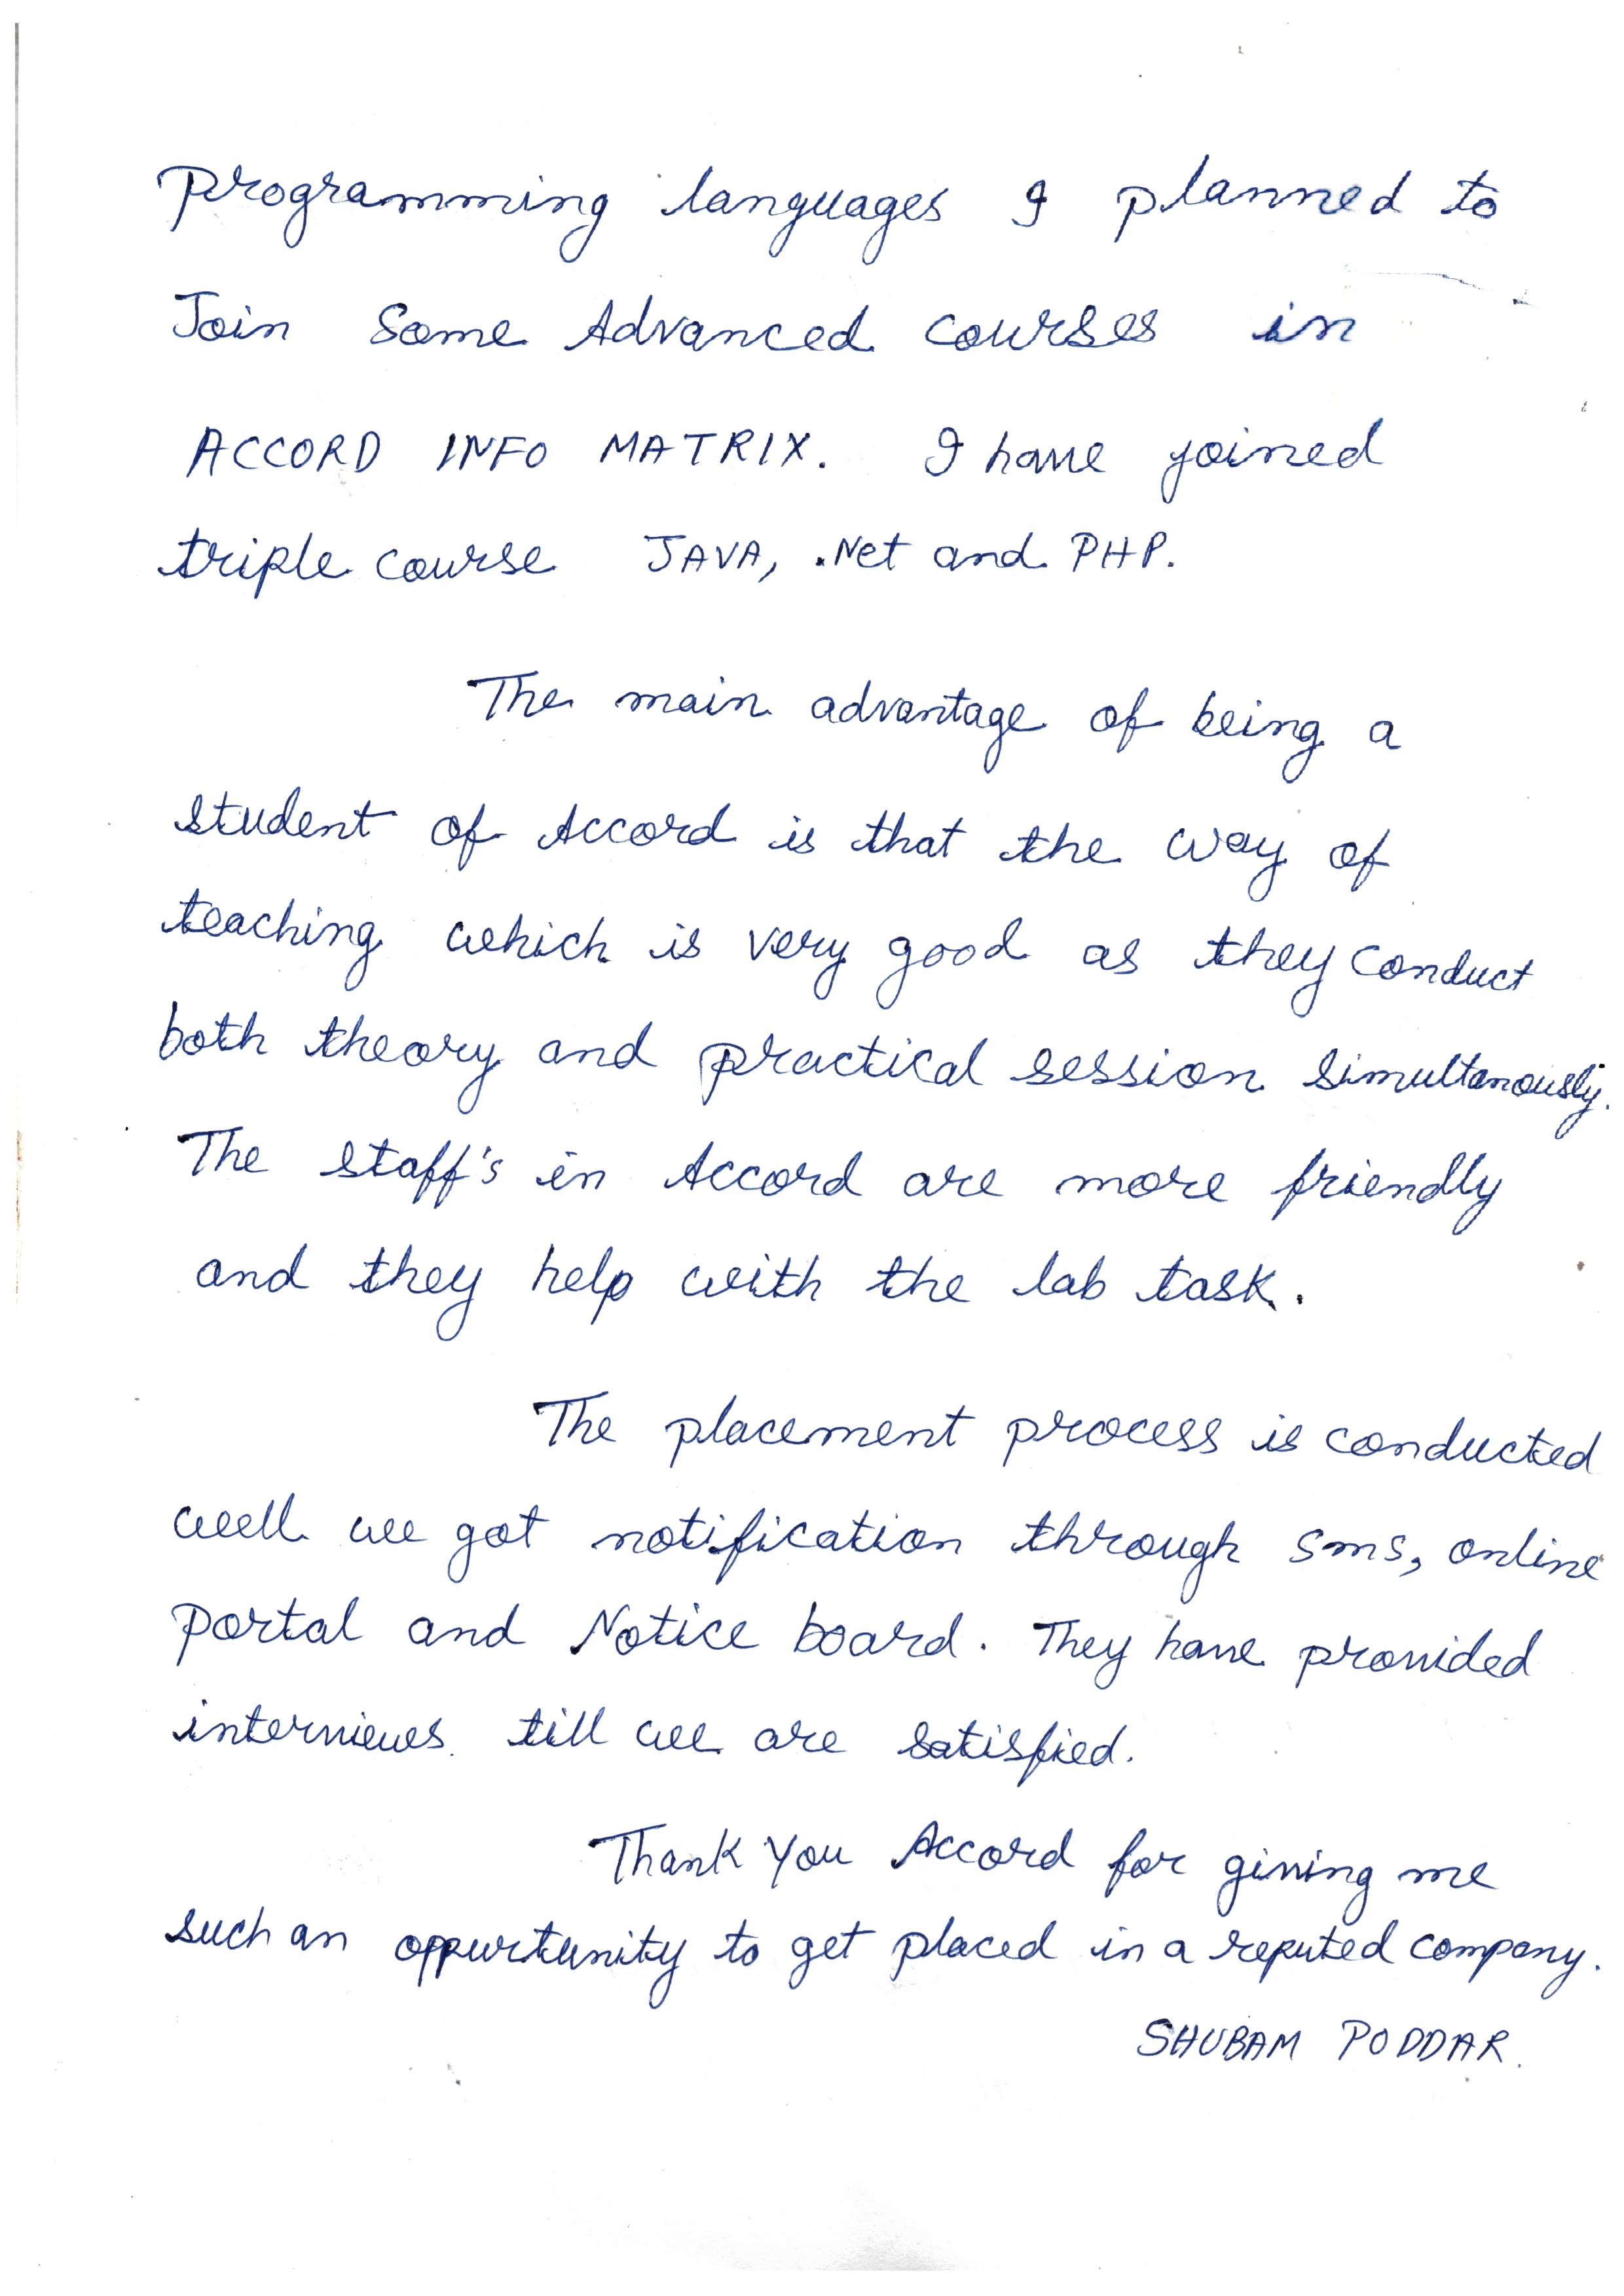 Programming languages I planned to
Join Some Advanced courses in
ACCORD INFO MATRIX. I have joined
triple course JAVA, .Net and PHP.
The main advantage of being a
student of Accord is that the way of
teaching which is very good as they conduct
both theory and practical session simultanously.
The staff's in Accord are more friendly
and they help with the lab task.
The placement process is conducted
well we got notification through sms, online
portal and Notice board. They have provided
interviews till we are satisfied.
Thank You Accord for giving me
such an oppurtunity to get placed in a reputed company.
SHUBAM PODDAR.